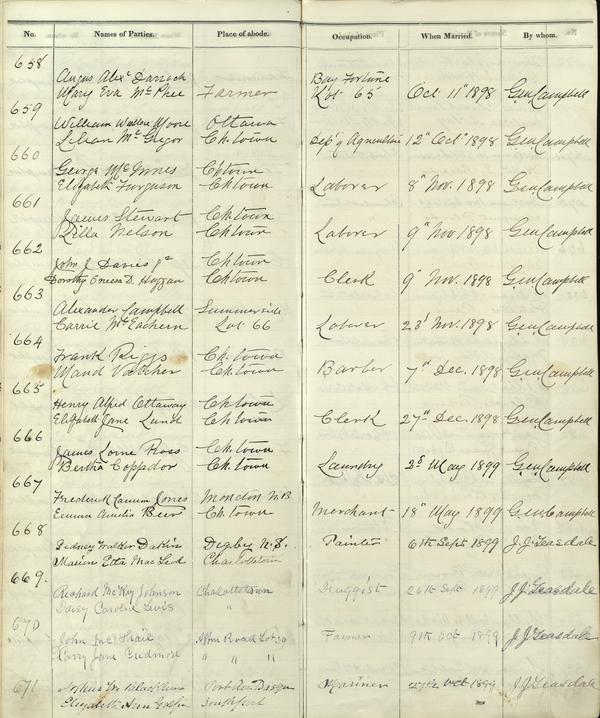 No. Names of Parties. Place of abode. Occupation. When Married. By whom.
658
Angus Alexr Darrach Bay Fortune
Mary Eva McPhee Farmer Lot 65 Oct 11th 1898 Geo. Campbell
659
William Moore Ottawa
Lilian McGregor Ch.town Dep. of Agriculture 12th Oct 1898 Geo. Campbell
660
George McInnes Ch.town
Elizabeth Furguson Ch.town Laborer 8th Nov. 1898 Geo. Campbell
661
James Stewart Ch.town
Lilla Nelson Ch.town Laborer 9th Nov 1898 Geo. Campbell
662
John J. Davies Jr Ch.town
Dorothy D. Ch.town Clerk 9th Nov. 1898 Geo. Campbell
663
Alexander Campbell Summerside
Carrie McEachern Lot 66 Laborer 23d Nov. 1898 Geo. Campbell
664
Frank Riggs Ch.town
Maud Ch.town Barber 7th Dec. 1898 Geo. Campbell
665
Henry Alfred Ottaway Ch.town
Elizabeth Jane Lund Ch.town Clerk 27th Dec. 1898 Geo. Campbell
666
James Lorne Ross Ch.town
Bertha Ch.town Laundry May 1899 Geo. Campbell
667
Frederick Jones Moncton N.B
Emma Amelia Beer Ch.town Merchant 18th May 1899 Geo. Campbell
668
Sidney Walker Dakin Digby N.S. Painter 6th Sept 1899 J. J. Teasdale
Marion Etta MacLeod Charlottetown
669.
Richard McKay Johnson Charlottetown Druggist 26th Sept 1899 J. J. Teasdale
Daisy Caroline Lewis "
670
John McPhail Road Lot 30 Farmer 9th Oct 1899 J. J. Teasdale
Carry Jane Cudmore " " "
671 Mariner 27th Oct 1899 J. J. Teasdale
Elizabeth Ann Southport